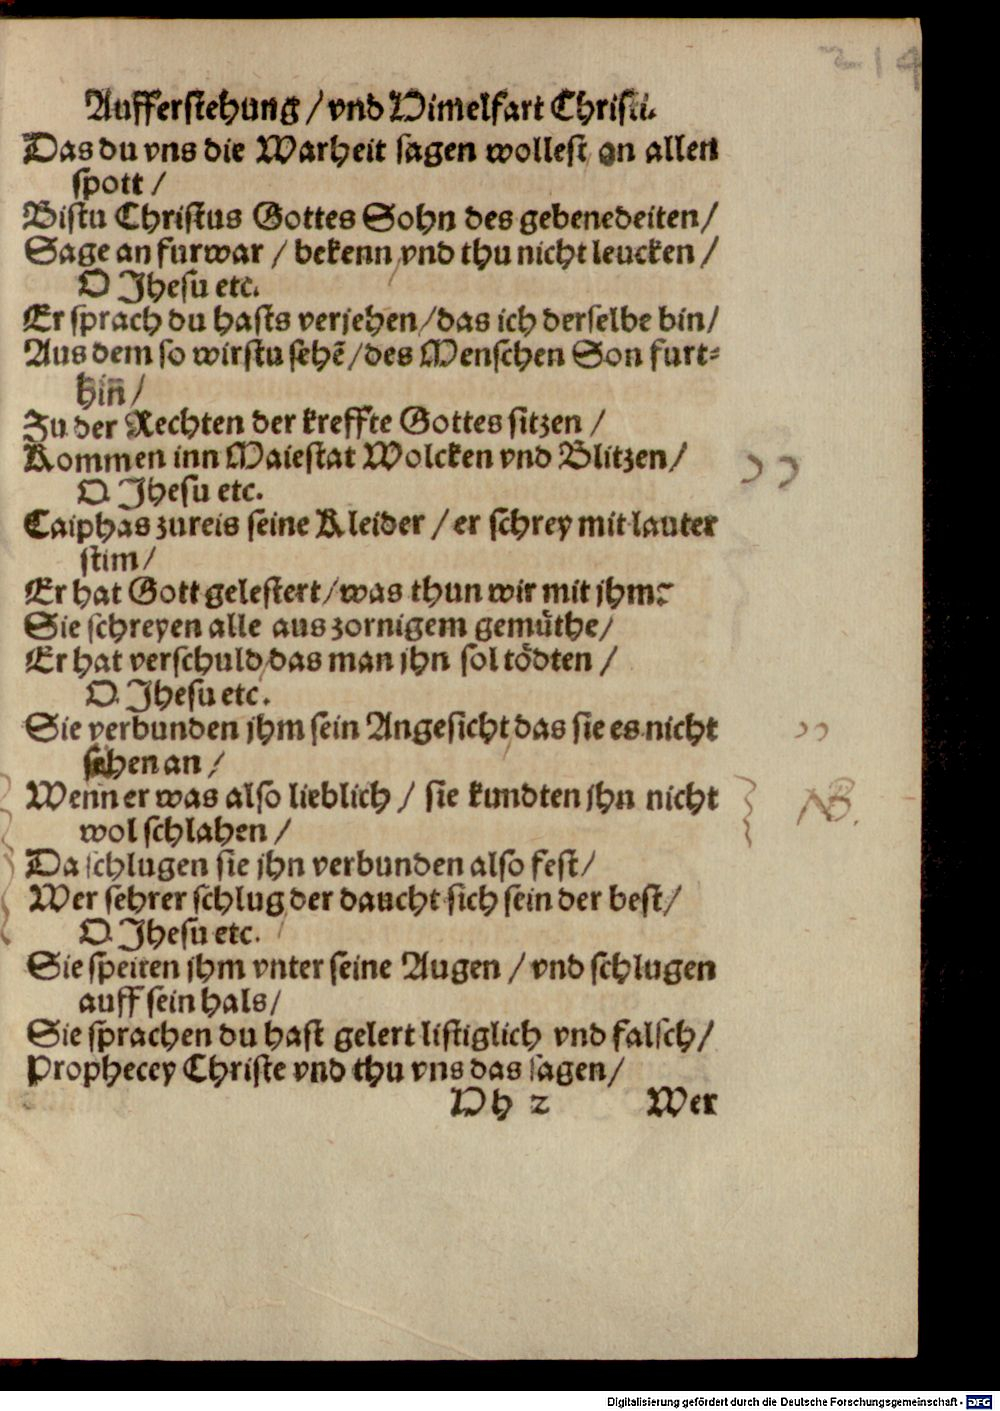 214
Aufferstehung / vnd Himelfart Christi.
Das du vns die Warheit sagen wollest on allen
spott /
Bistu Christus Gottes Sohn des gebenedeiten /
Sage an furwar / bekenn vnd thu nicht leucken /
O Jhesu etc.
Er sprach du hasts verjehen / das ich derselbe bin /
Aus dem so wirstu sehẽ / des Menschen Son furt⸗
hin̄ /
Zu der Rechten der kreffte Gottes sitzen /
Kommen inn Maiestat Wolcken vnd Blitzen /
O Jhesu etc.
Caiphas zureis seine Kleider / er schrey mit lauter
stim /
Er hat Gott gelestert / was thun wir mit jhm?
Sie schreyen alle aus zornigem gemüthe /
Er hat verschuld das man jhn sol tödten /
O Jhesu etc.
Sie verbunden jhm sein Angesicht das sie es nicht
sehen an /
Wenn er was also lieblich / sie kundten jhn nicht
wol schlahen /
NB.
Da schlugen sie jhn verbunden also fest /
Wer sehrer schlug der daucht sich sein der best /
O Jhesu etc.
Sie speiten jhm vnter seine Augen / vnd schlugen
auff sein hals /
Sie sprachen du hast gelert listiglich vnd falsch /
Prophecey Christe vnd thu vns das sagen /
Hh 2 Wer
Digitalisierung gefördert durch die Deutsche Forschungsgemeinschaft - DFG